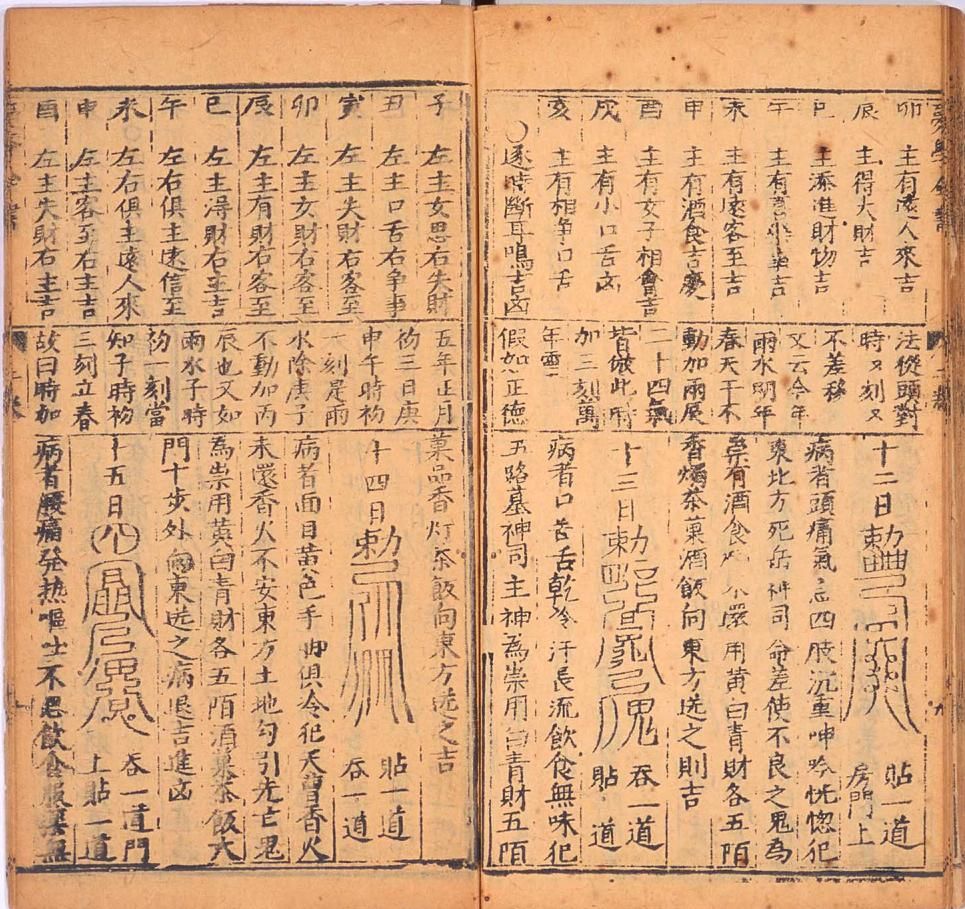 卯 主有遠人來吉
辰 主得大財吉
巳 主添進財物吉
午 主有喜 吉
未 主有遠客至吉
申 主有酒食吉慶
酉 主有女子相會吉
戌 主有小口舌凶
亥 主有相爭口舌
○逐時斷耳鳴吉凶
法從頭對
時又刻又
不差移
又云今年
雨水明年
春天干不
動加兩展
二十四氣
皆倣此時
加三刻萬
年靈
假如正德
十二日 勅 貼一道房門上
病者頭痛氣急四肢沉重呻吟恍惚犯
東北方死岳神司命差使不良之鬼為
祟有酒食 還用黃白青財各五陌
香燭茶菓酒飯向東方送之則吉
十三日 勅 吞一道貼 道
病者口苦舌乾冷汗長流飲食無味犯
五路墓神司主神為祟用白青財五陌
子 左主女思右失財
丑 左主口舌右爭事
寅 左主失財右客至
卯 左主女財右客至
辰 左主有財右客至
巳 左主淂財右主吉
午 左右俱主遠信至
未 左右俱主遠人來
申 左主客至右主吉
酉 左主失財右主吉
五年正月
初三日庚
申午時初
一刻是雨
水除庚子
不動加丙
辰也又如
雨水子時
初一刻當
知子時初
三刻立春
故曰時加
菓品香灯茶飯向東方送之吉
十四日 勅 貼一道吞一道
病者面目黃色手脚俱冷犯天曹香火
未還香火不安東方土地勾引尢亡鬼
為祟用黃白青財各五陌酒菓茶飯大
門十步外向東送之病退吉進凶
十五日 吞一道門上貼一道
病者腰痛發热嘔吐不思飲食服藥無